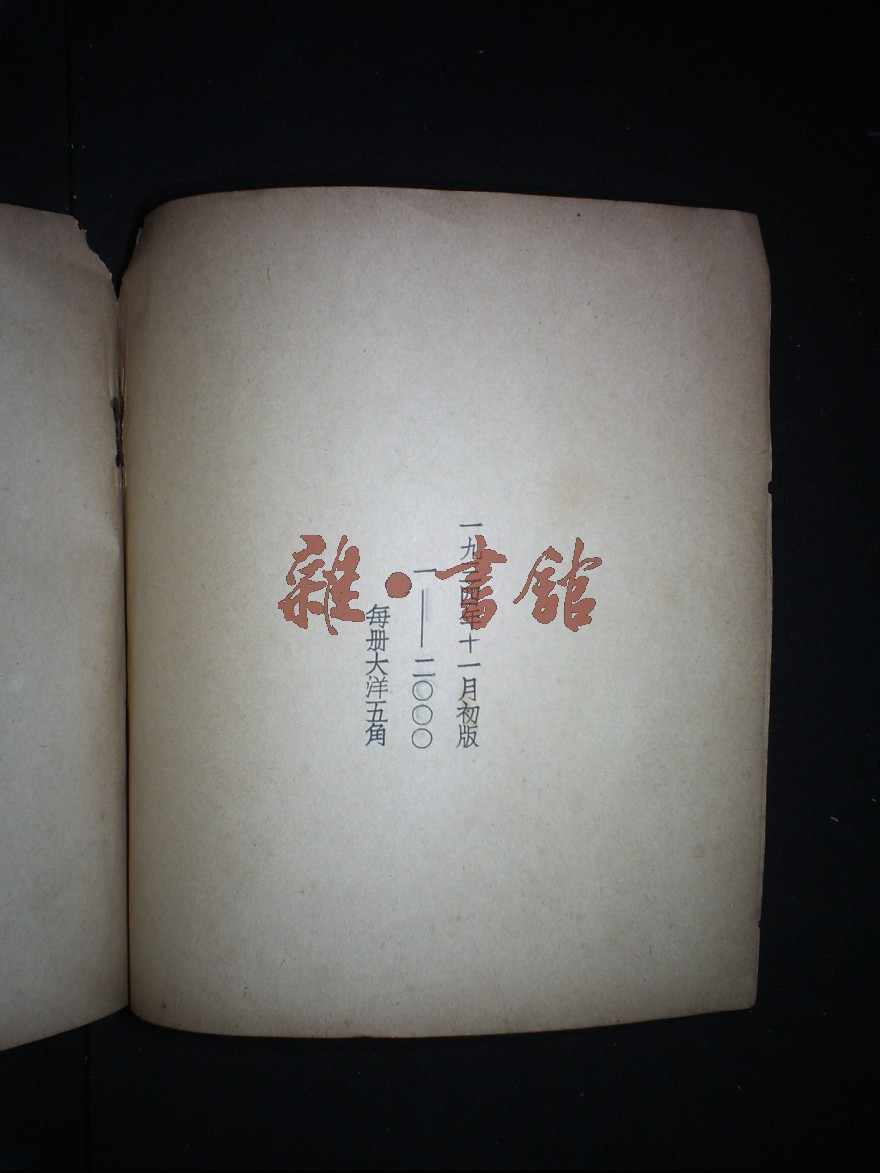 一九三四年十一月初版
一——二〇〇〇
每册大洋五角
雜·書館